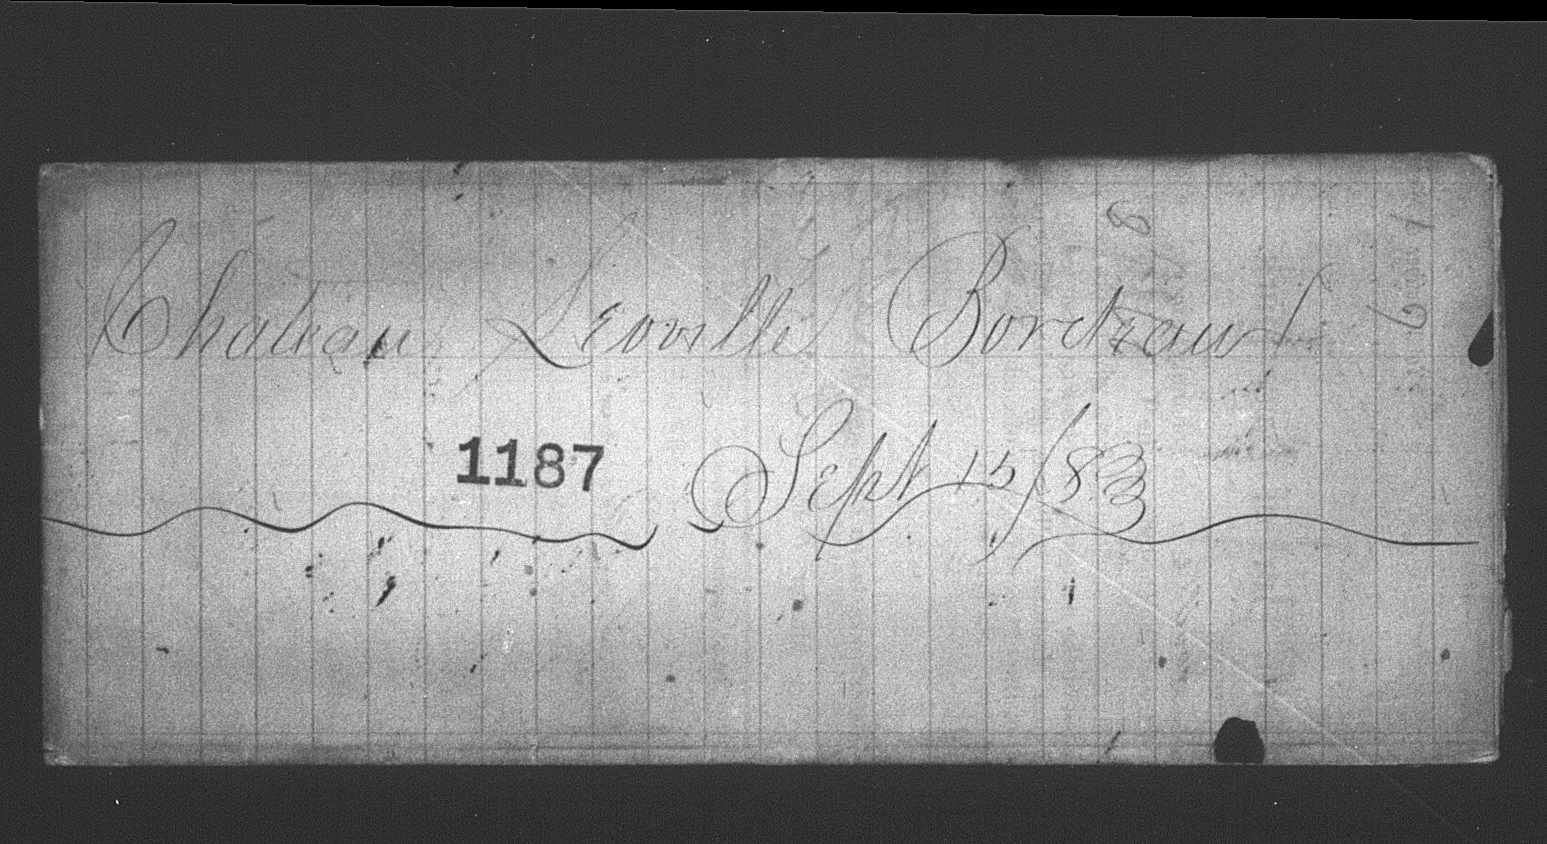 Chateau Leoville Bordeaux
1187 Sept 15/83